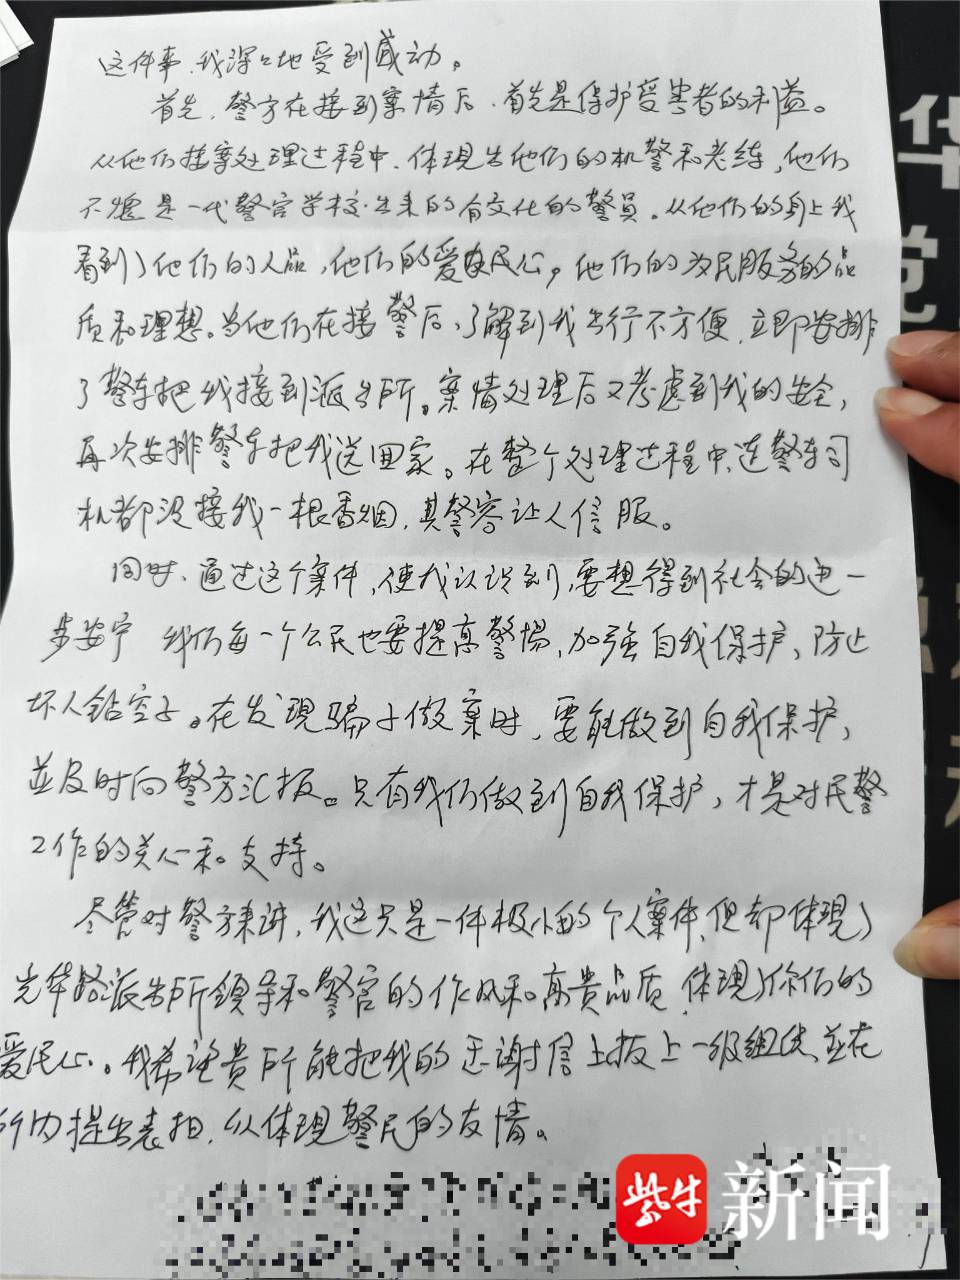 这件事,我深深地受到感动。
首先,警方在接到案情后,首先是保护受害者的利益。
从他们接案处理过程中,体现出他们的机警和老练,他们
不愧是一代警官学校出来的有文化的警员。从他们的身上我
看到了他们的人品,他们的爱民心,他们的为民服务的品
质和理想。当他们在接警后,了解到我出行不方便,立即安排
了警车把我接到派出所。案情处理后又考虑到我的安全,
再次安排警车把我送回家。在整个处理过程中,连警车司
机都没接我一根香烟,其警容让人信服。
同时,通过这个案件,使我认识到,要想得到社会的进一
步安宁 我们每一个公民也要提高警惕,加强自我保护,防止
坏人钻空子。在发现骗子做案时,要能做到自我保护,
並及时向警方汇报。只有我们做到自我保护,才是对民警
工作的关心和支持。
尽管对警方来讲,我这只是一件极小的个人案件,但却体现了
光华路派出所领导和警官的作风和高贵品质,体现了你们的
爱民心。我希望贵所能把我的感谢信上报上一级组织,並在
所内提出表扬,以体现警民的友情。
紫牛新闻
华
党